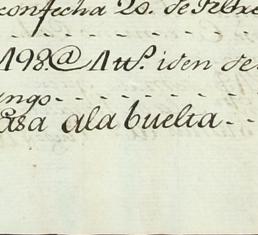 con fecha 20. de Febre
198.@ 1 ttº. iden de
ango
asa ala buelta